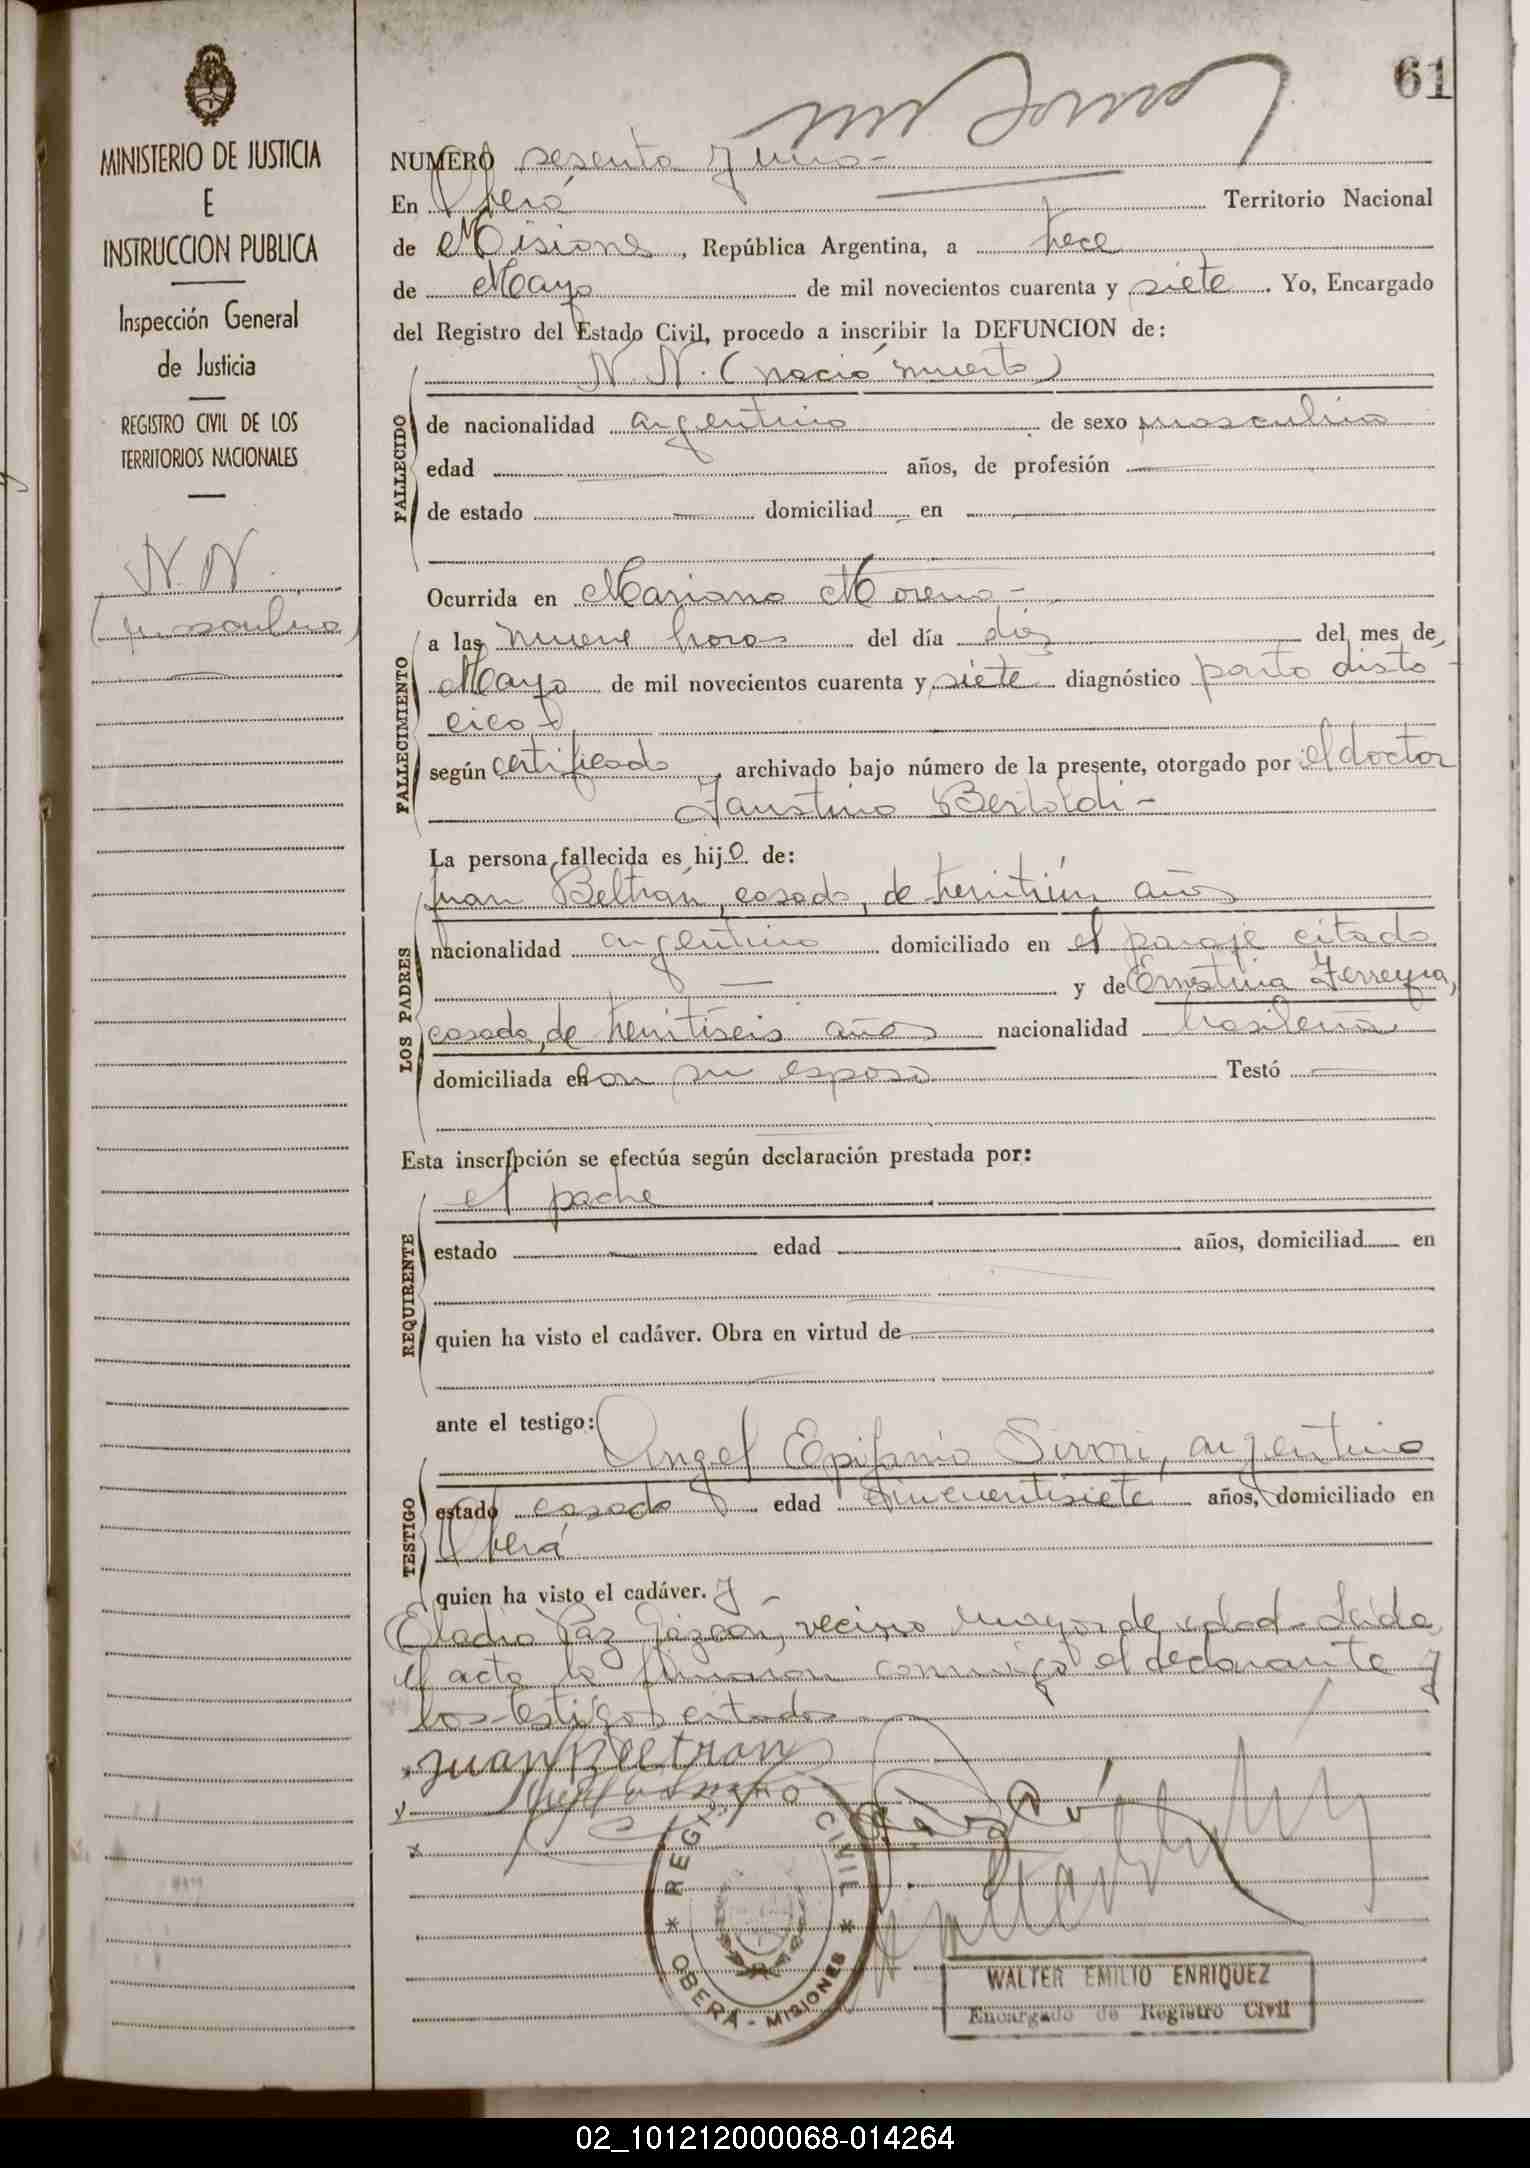 61
MINISTERIO DE JUSTICIA
E
INSTRUCCION PUBLICA
Inspección General
de Justicia
REGISTRO CIVIL DE LOS
TERRITORIOS NACIONALES
N. N.
(masculino)
NUMERO sesenta y uno-
En Oberá Territorio Nacional
de Misiones, República Argentina, a trece
de Mayo de mil novecientos cuarenta y siete. Yo, Encargado
del Registro del Estado Civil, procedo a inscribir la DEFUNCION de:
N. N. (nació muerto)
FALLECIDO
de nacionalidad argentino de sexo masculino
edad — años, de profesión —
de estado — domiciliad en —
FALLECIMIENTO
Ocurrida en Mariano Moreno-
a las nueve horas del día diez del mes de
Mayo de mil novecientos cuarenta y siete diagnóstico parto distó-
cico-
según certificado, archivado bajo número de la presente, otorgado por el doctor
Faustino Bertoldi-
La persona fallecida es hijo de:
LOS PADRES
Juan Beltrán, casado, de treintiún años
nacionalidad argentino domiciliado en el paraje citado
— y de Ernestina Ferreyra,
casada, de treintiseis años nacionalidad brasileña
domiciliada en con su esposo Testó —
Esta inscripción se efectúa según declaración prestada por:
REQUIRENTE
el padre
estado — edad — años, domiciliad en
quien ha visto el cadáver. Obra en virtud de —
ante el testigo:
TESTIGO
Angel Epifanio Sivori, argentino
estado casado edad cincuentisiete años, domiciliado en
Oberá
quien ha visto el cadáver. y
Eladio Paz Gazcón, vecino mayor de edad- Leída
el acta la firmaron conmigo el declarante y
los testigos citados
Juan Beltran
REGISTRO CIVIL
* OBERÁ - MISIONES *
WALTER EMILIO ENRIQUEZ
Encargado de Registro Civil
02_101212000068-014264